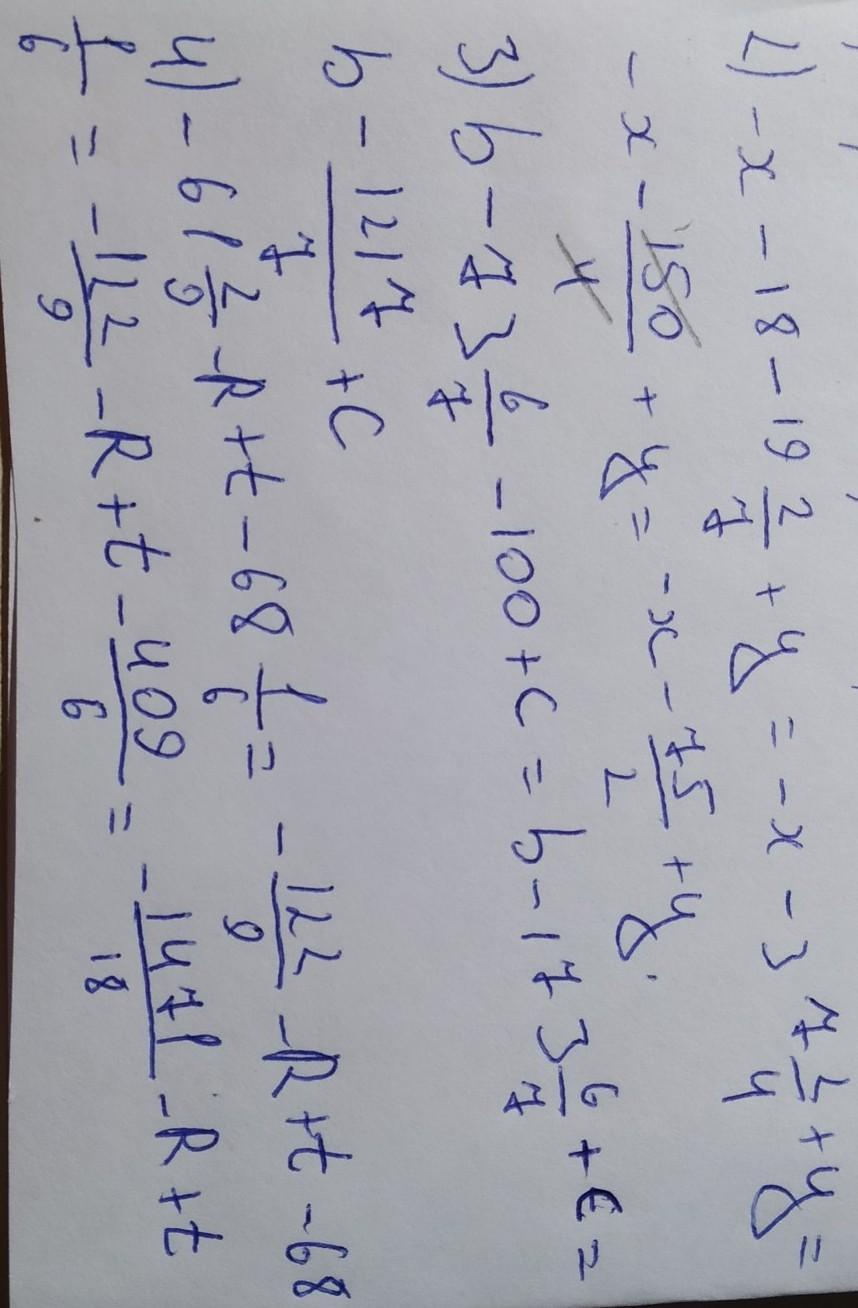 2) -x - 18 - 19 2/7 + y = -x - 37 2/4 + y =
-x - 150/4 + y = -x - 75/2 + y.
3) b - 73 6/7 - 100 + c = b - 173 6/7 + c =
b - 1217/7 + c
4) - 61 2/9 - R + t - 68 1/6 = - 122/9 - R + t - 68
1/6 = - 122/9 - R + t - 409/6 = - 1471/18 - R + t